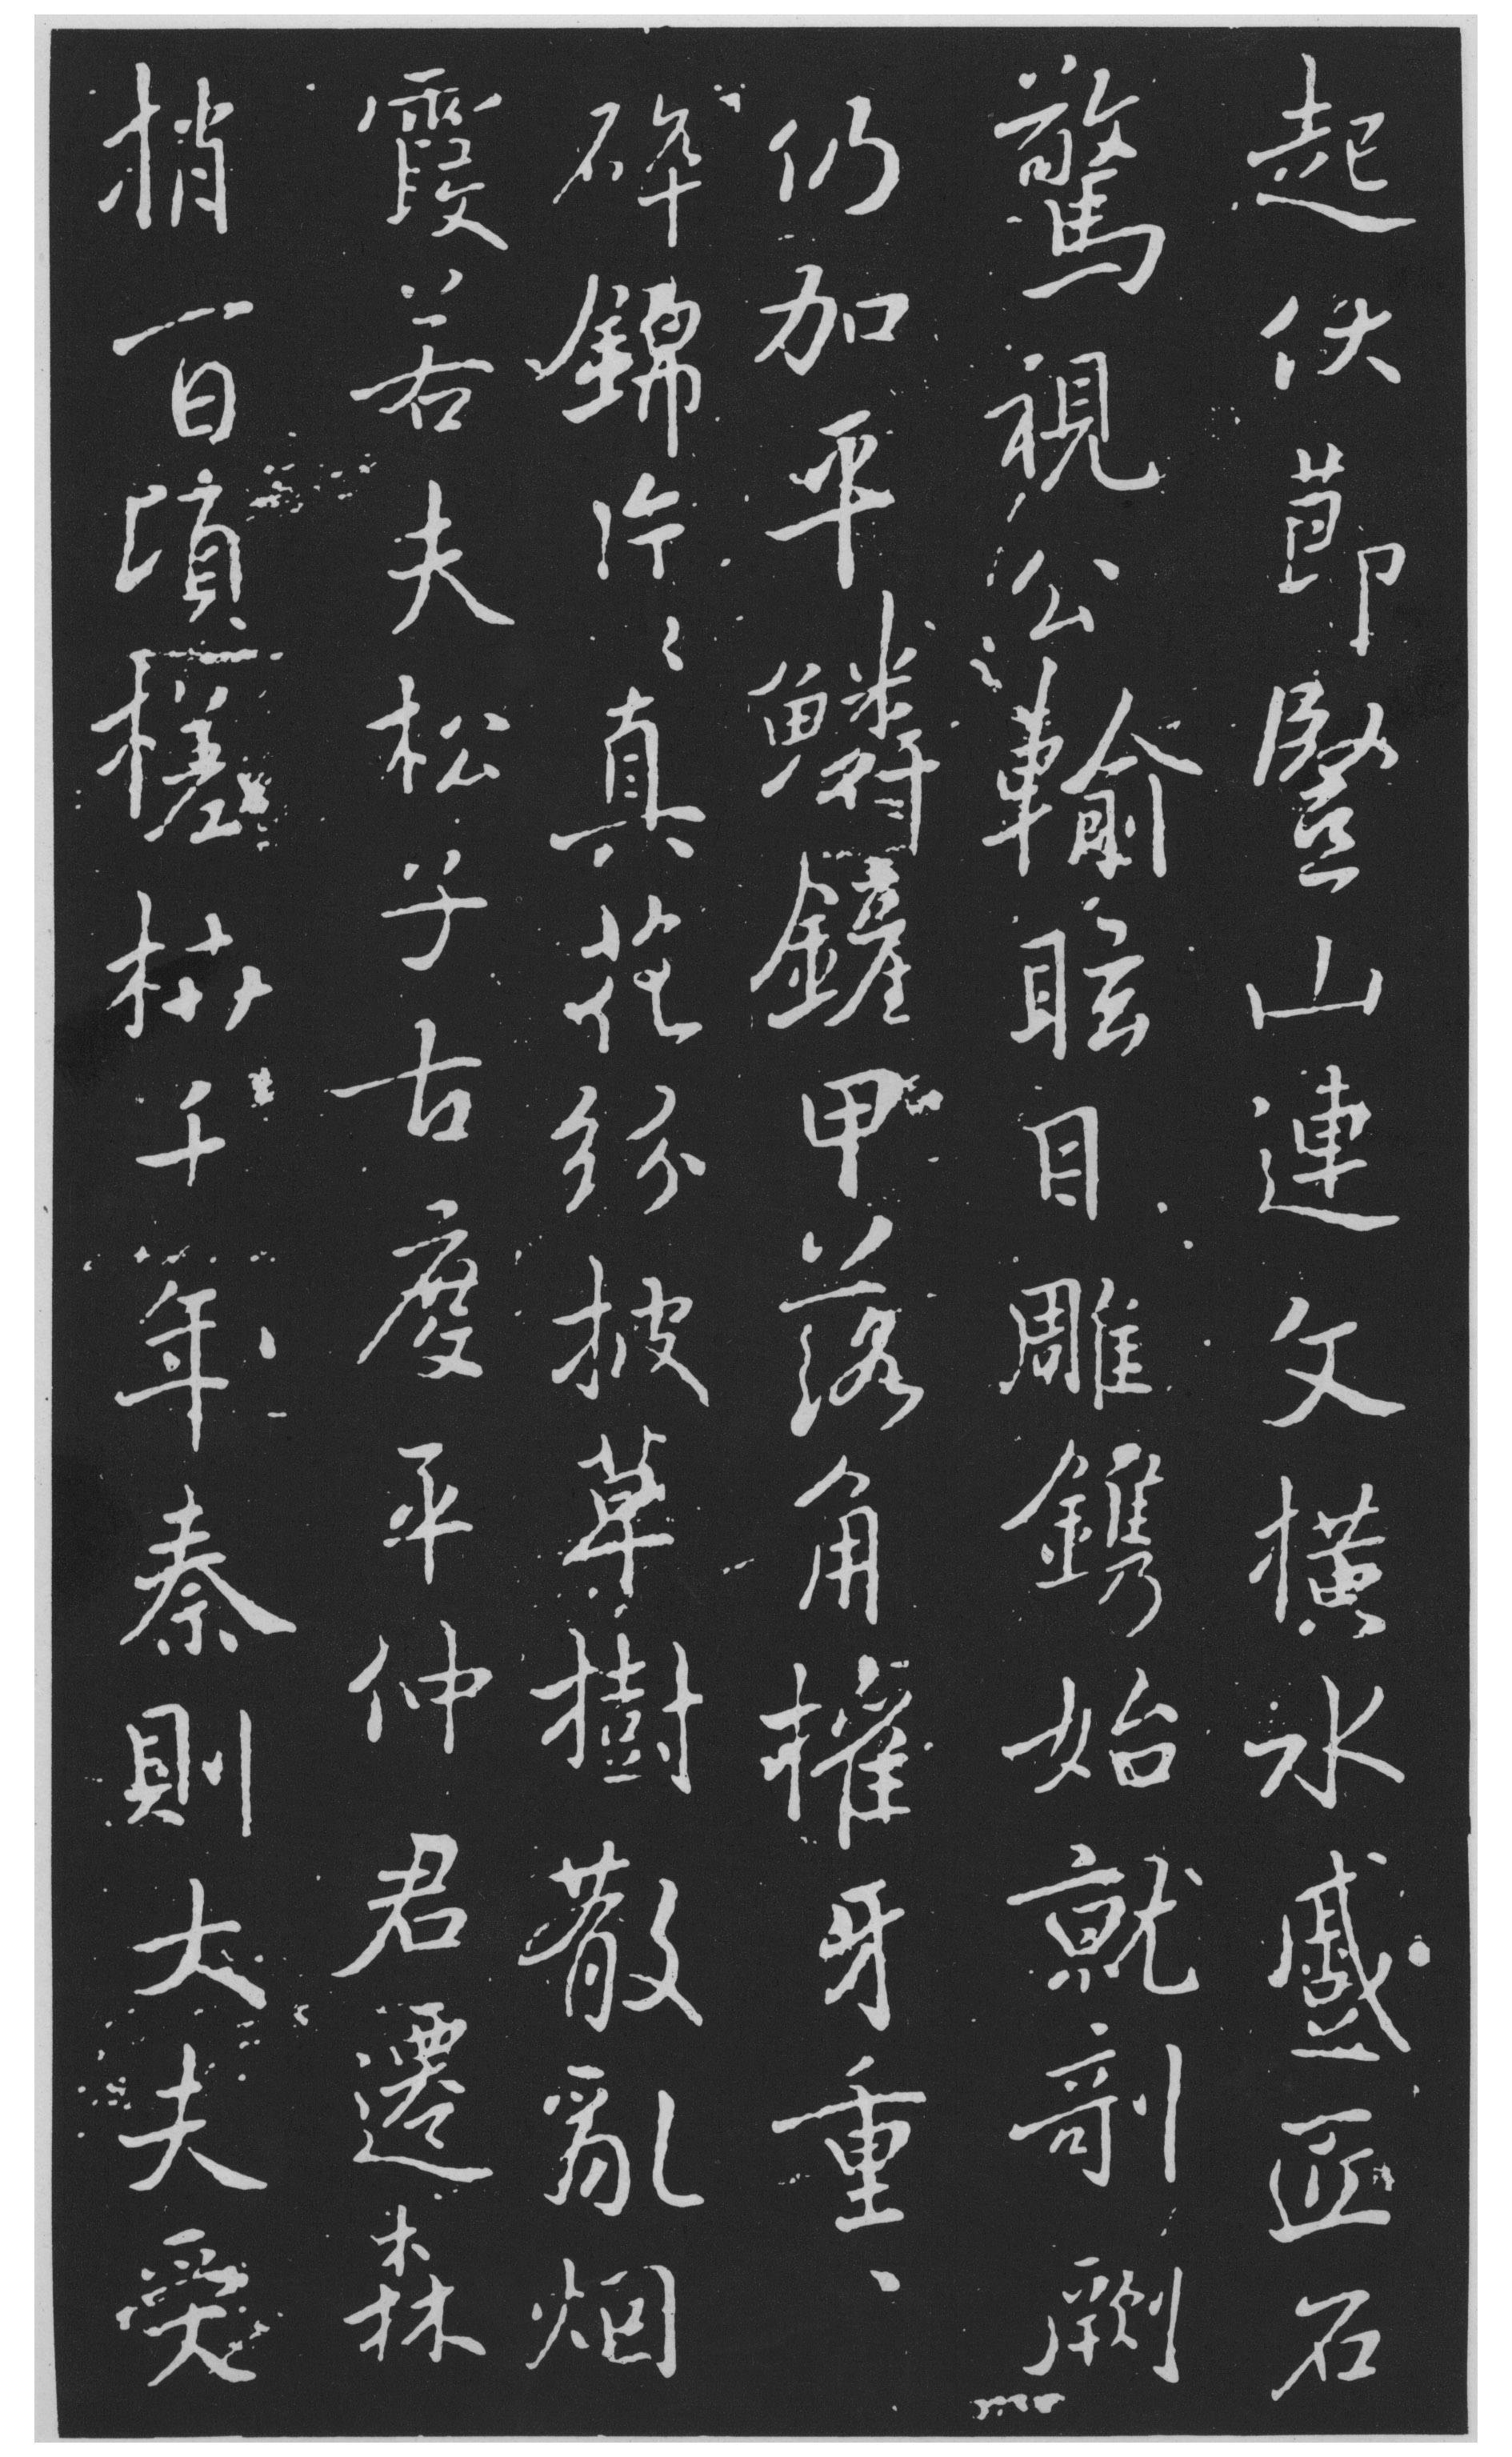 起伏節豎山連文橫水蹙匠石
驚視公輸眩目雕鐫始就剞劂
仍加平鱗鏟甲落角摧牙重〻
碎錦片〻真花紛披草樹散亂烟
霞若夫松子古度平仲君遷森
梢百頃槎枿千年秦則大夫受